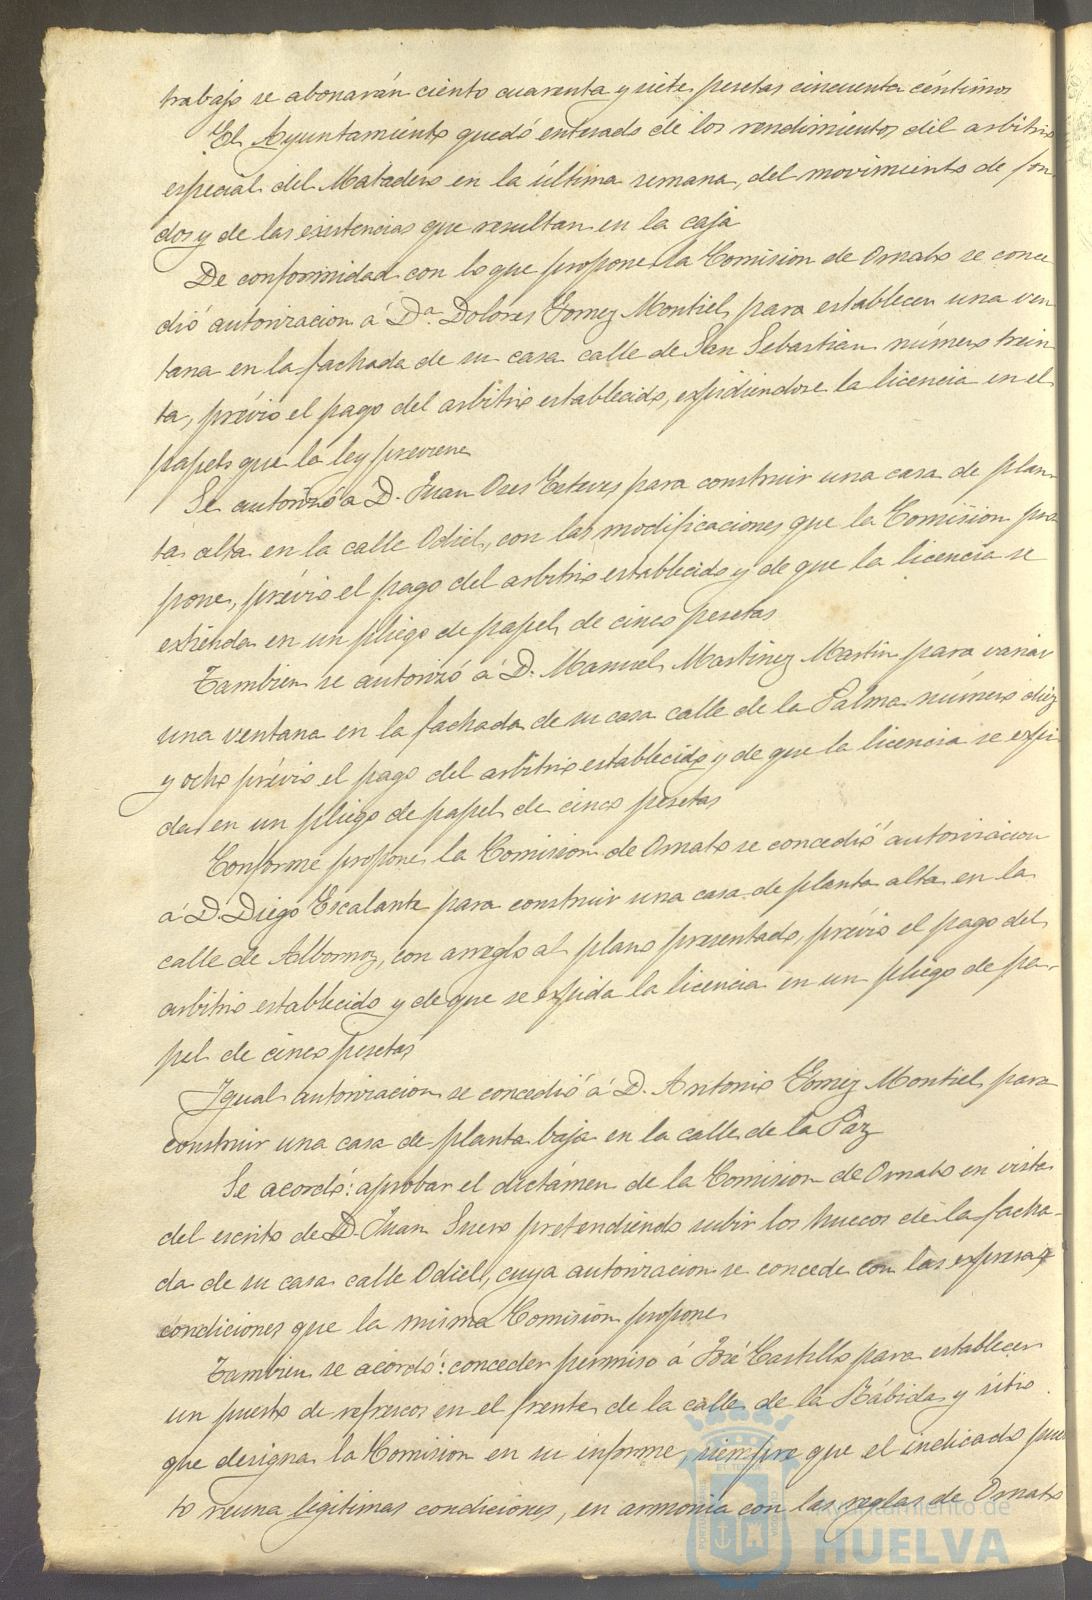 trabajo se abonarán ciento cuarenta y siete pesetas cincuenta céntimos
El Ayuntamiento quedó enterado de los rendimientos del arbitrio
especial del Matadero en la última semana, del movimiento de fon-
dos y de las existencias que resultan en la caja
De conformidad con lo que propone la Comision de Ornato se conce
dió autorizacion á Dª. Dolores Gomez Montiel para establecer una ven
tana en la fachada de su casa calle de San Sebastian número trein
ta, prévio el pago del arbitrio establecido, expidiendose la licencia en el
papel que la ley previene
Se autorizó á D. Juan Oses Esteves para construir una casa de plan-
ta alta en la calle Odiel, con las modificaciones que la Comision pro
pone, prévio el pago del arbitrio establecido y de que la licencia se
extienda en un pliego de papel de cinco pesetas
Tambien se autorizó á D. Manuel Martinez Martin para variar
una ventana en la fachada de su casa calle de la Palma número diez
y ocho prévio el pago del arbitrio establecido y de que la licencia se expi
da en un pliego de papel de cinco pesetas
Conforme propone la Comision de Ornato se concedió autorizacion
á D. Diego Escalante para construir una casa de planta alta en la
calle de Albornoz, con arreglo al plano presentado, prévio el pago del
arbitrio establecido y de que se expida la licencia en un pliego de pa-
pel de cinco pesetas
Igual autorizacion se concedió á D. Antonio Gomez Montiel para
construir una casa de planta baja en la calle de la Paz
Se acordó: aprobar el dictámen de la Comision de Ornato en vista
del escrito de D. Juan Suero pretendiendo subir los huecos de la facha-
da de su casa calle Odiel, cuya autorizacion se concede con las expresas
condiciones que la misma Comisión propone
Tambien se acordó: conceder permiso á José Castillo para establecer
un puesto de refrescos en el frente de la calle de la Rábida y sitio
que designa la Comision en su informe, siempre que el indicado pues
to reuna legitimas condiciones, en armonia con las reglas de Ornato
Ayuntamiento de
HUELVA